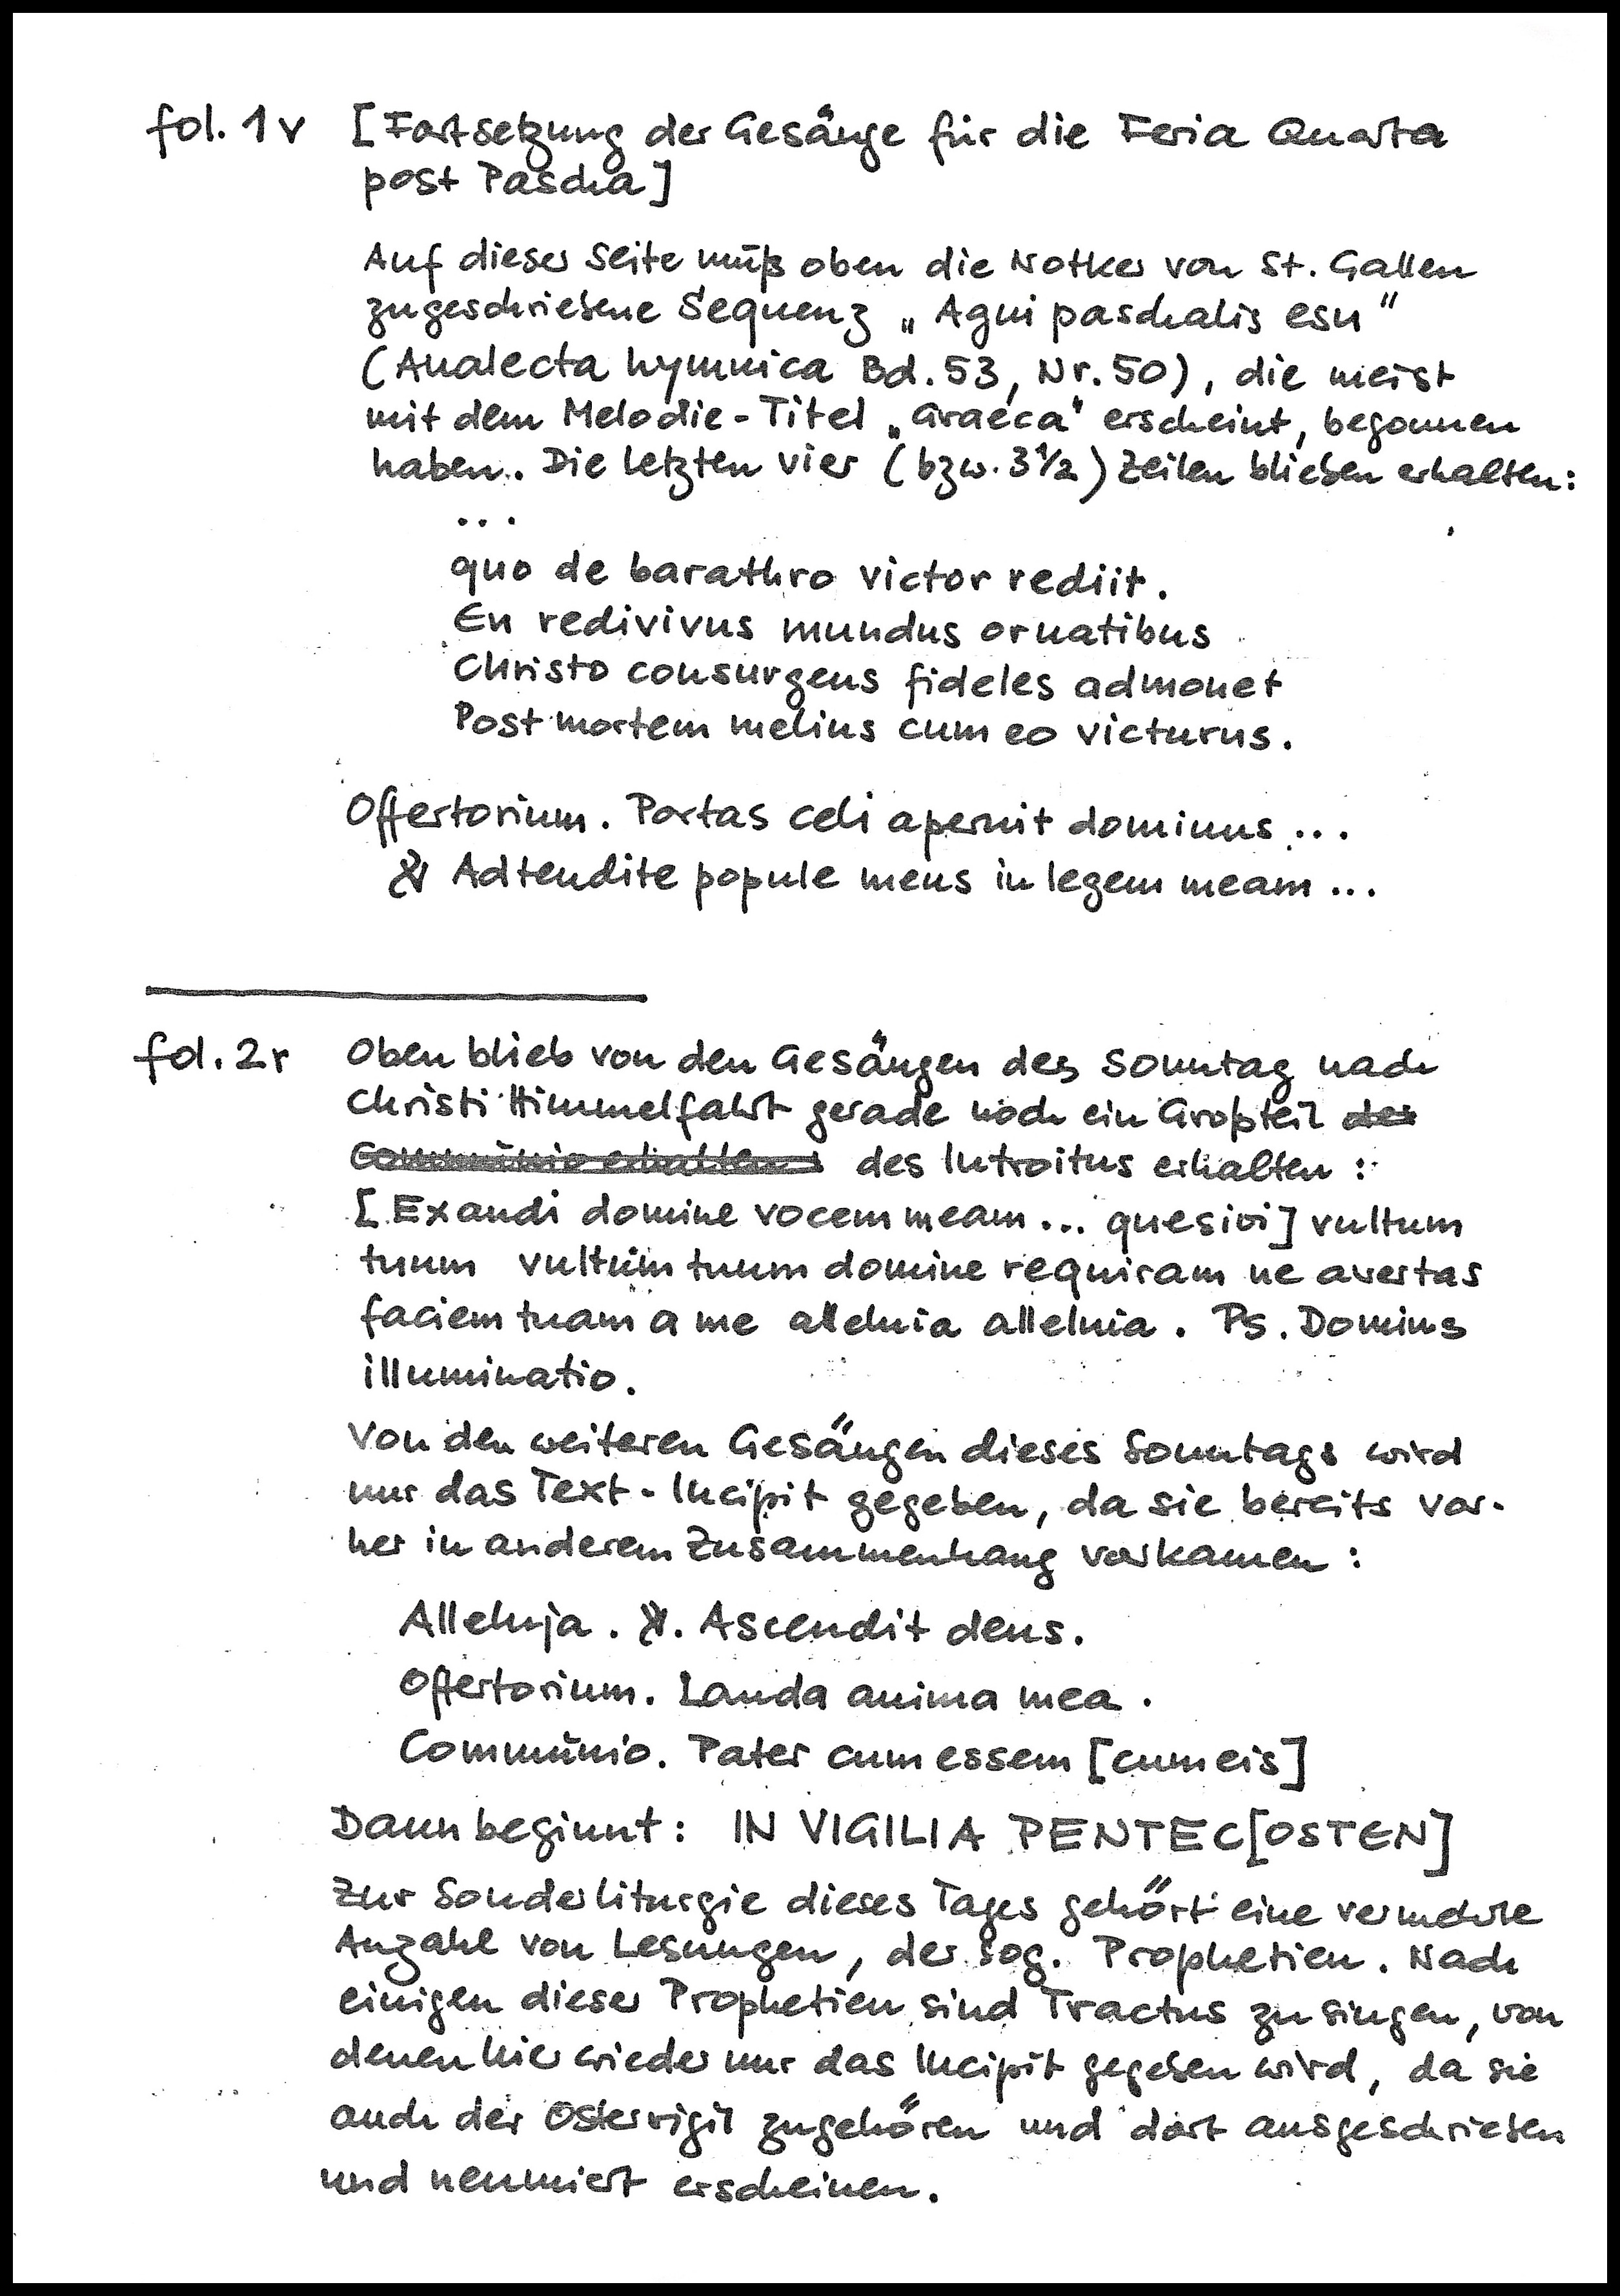 fol. 1v [Fortsetzung der Gesänge für die Feria Quarta
post Pascha]
Auf dieser Seite muß oben die Notker von St. Gallen
zugeschriebene Sequenz „Agni paschalis esu"
(Analecta hymnica Bd. 53, Nr. 50), die meist
mit dem Melodie-Titel „Graeca" erscheint, begonnen
haben. Die letzten vier (bzw. 3½) Zeilen blieben erhalten:
...
quo de barathro victor rediit.
En redivivus mundus ornatibus
Christo consurgens fideles admonet
Post mortem melius cum eo victurus.
Offertorium. Portas celi aperuit dominus...
℣ Adtendite popule meus in legem meam...
fol. 2r Oben blieb von den Gesängen des Sonntag nach
Christi Himmelfahrt gerade noch ein Großteil der
Communio erhalten: des Introitus erhalten:
[Exaudi domine vocem meam... quesivi] vultum
tuum vultum tuum domine requiram ne avertas
faciem tuam a me alleluia alleluia. Ps. Dominus
illuminatio.
Von den weiteren Gesängen dieses Sonntags wird
nur das Text-Incipit gegeben, da sie bereits vor-
her in anderem Zusammenhang vorkamen:
Alleluja. ℣. Ascendit deus.
Offertorium. Lauda anima mea.
Communio. Pater cum essem [cum eis]
Dann beginnt: IN VIGILIA PENTEC[OSTEN]
Zur Sonderliturgie dieses Tages gehört eine vermehrte
Anzahl von Lesungen, der sog. Prophetien. Nach
einigen dieser Prophetien sind Tractus zu singen, von
denen hier wieder nur das Incipit gegeben wird, da sie
auch der Ostervigil zugehören und dort ausgeschrieben
und neumiert erscheinen.